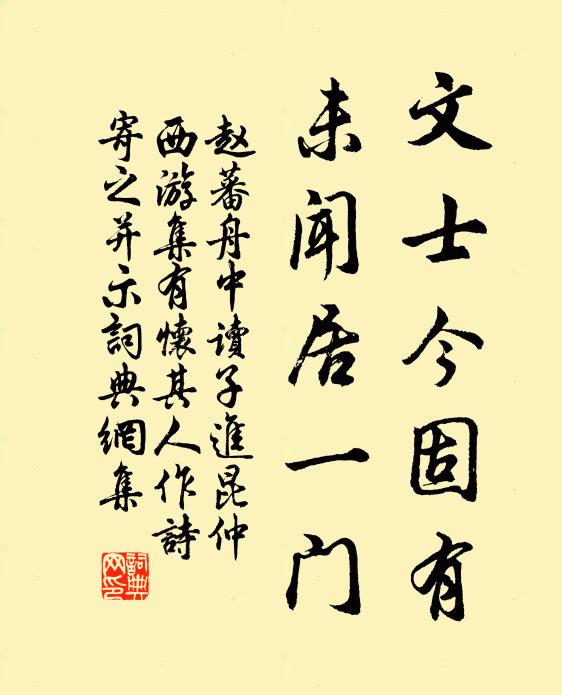 文士今固有
未闻居一门
赵蕃舟中讀子進昆仲
西游集有懷其人作詩
寄之并示詞典網集
詞典
网印